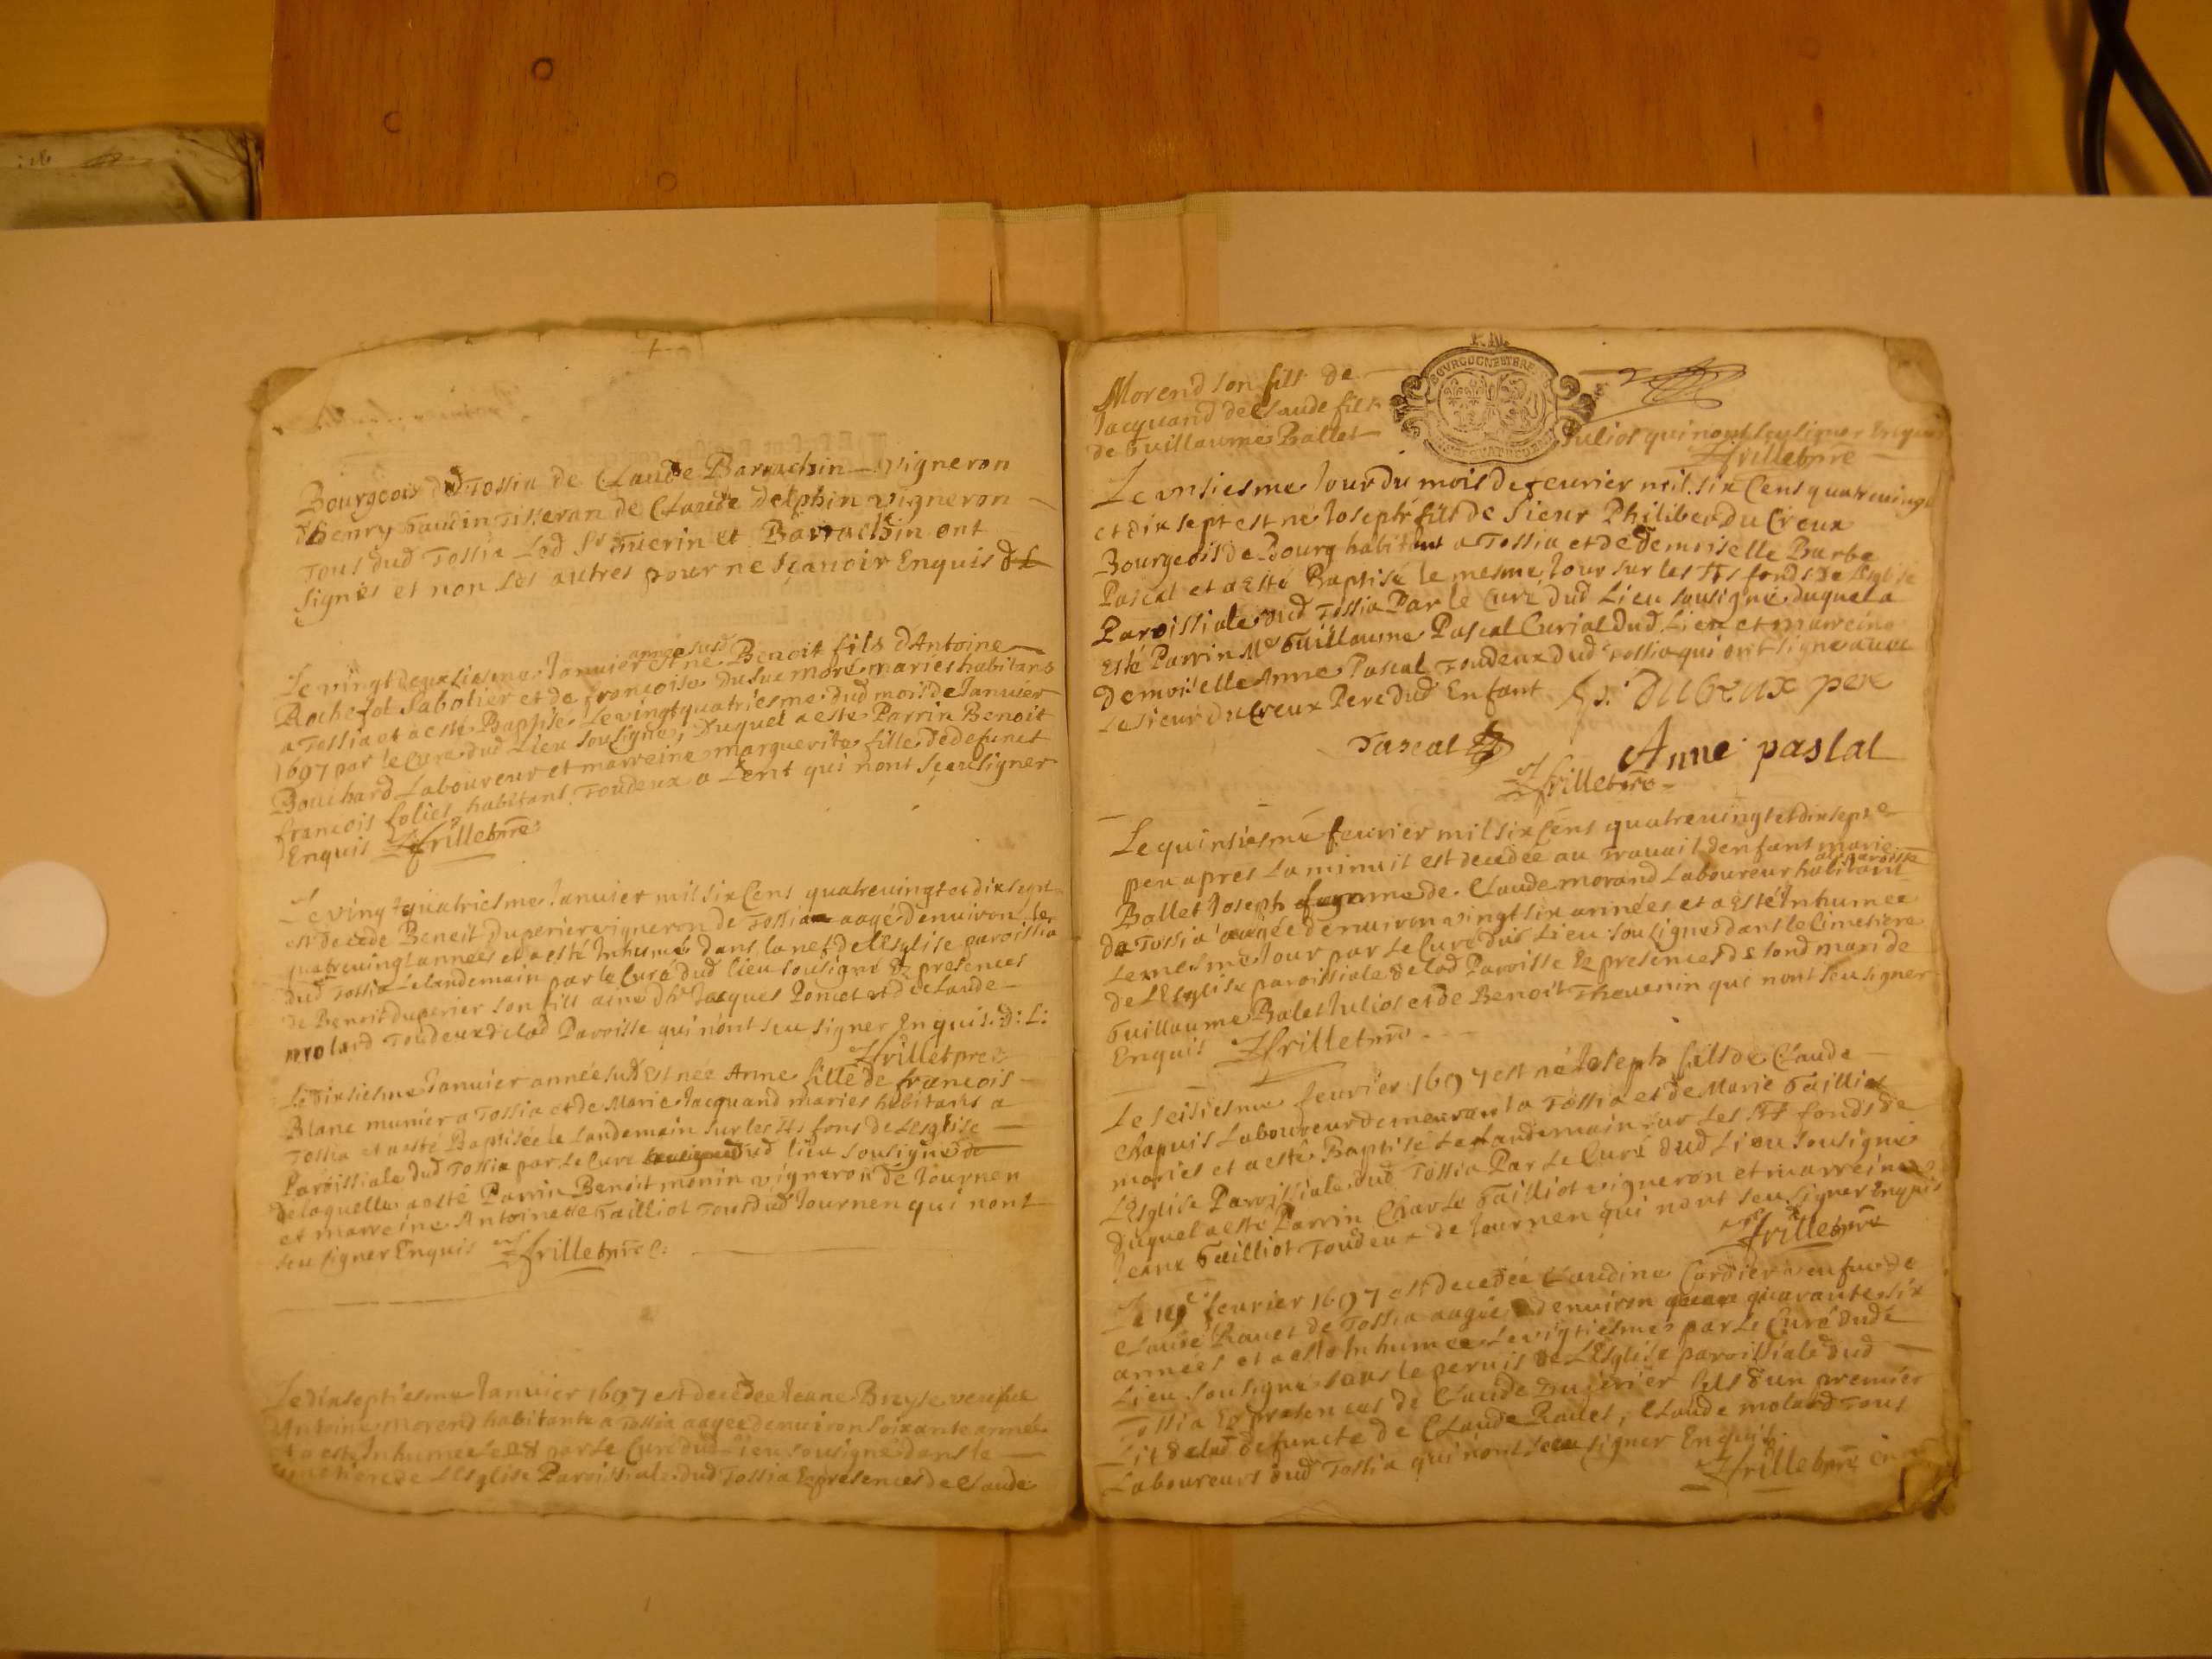 Bourgeois dud Tossia de Claude Barrachin vigneron
d'henry Gaudin Tisseran de Claude delphin vigneron
Tous dud Tossia Led Sr Guerin et Barrachin ont
signés et non les autres pour ne scavoir Enquis
Le vingt deuxiesme Janvier année susd est né Benoit fils d'Antoine
Rochefot Sabotier et de francoise mariés habitans
a Tossia et a esté Baptisé Le vingt quatriesme dud mois de Janvier
1697 par le Curé dud Lieu sousigné, Duquel a esté Parrin Benoit
Bouchard Laboureur et marreine marguerite fille de defunct
francois habitant Toudeux a Lent qui nont sceu signer
Enquis frillet pre
Le vingt quatriesme Janvier mil six Cens quatrevingt et dix sept
est decedé Benoit Duperier vigneron de Tossia aagé d'environ
quatrevingt années et a esté Inhumé dans la nef de l'Esglise paroissia
dud Tossia Le landemain par le Curé dud lieu sousigné Es presences
de Benoit duperier son fils ainé d'hr Jacques Poncet et de Claude
molard Toudeux de lad Paroisse qui n'ont sceu signer Enquis. D: L:
frillet pre
Le dixiesme Janvier année susd est née Anne fille de francois
Blanc munier a Tossia et de Marie Jacquand mariés habitans a
Tossia et a esté Baptisée le landemain sur les Sts fons de Lesglise
Paroissiale dud Tossia par Le Curé dud lieu sousigné
de laquelle a esté Parrin Benoit monin vigneron de Journen
et marreine Antoinette Gailliot Tous dud Journen qui nont
sceu signer Enquis frillet pre
Le dixseptiesme Janvier 1697 est decedée Jeane Breyse veufue
d'Antoine Morend habitante a Tossia aagée d'environ soixante année
et a esté Inhumée le 18 par Le Curé dud Lieu sousigné dans le
Cimetiere de L'Esglise Paroissiale dud Tossia Es presences de Claude
Morend son fils de
Jacquand de Claude fils
de Guillaume Ballet
BOVRGOGNE ET BRE
Juliot qui nont sceu signer Enquis
frillet pre
Le unsiesme Jour du mois de feurier mil six Cens quatreuingt
et dix sept est né Joseph fils de Sieur Philiber Du Creux
Bourgeois de Bourg habitant a Tossia et de demoiselle Barbe
Pascal et a Esté Baptisé le mesme Jour sur les Sts fonds de L'Esglise
Paroissiale dud Tossia Par le Curé dud Lieu sousigné duquel a
Esté Parrin Me Guillaume Pascal Curial dud Lieu et marreine
Demoiselle Anne Pascal Toudeux dud Tossia qui ont signé auec
Le sieur Du Creux Pere dud Enfant P. DuCreux pere
Pascal
Anne paslal
frillet pre
Le quinsiesme feurier mil six Cens quatreuingt et dix sept
peu apres La minuit est decedée au Trauail d'enfant marie
Ballet Joseph femme de Claude morand Laboureur habitant
de Tossia aagée d'enuiron vingt six années et a Esté Inhumée
Le mesme Jour par Le Curé dud Lieu sousigné dans le Cimetiere
de L'Esglise paroissiale de lad Paroisse Es presences de sond mari de
Guillaume Balet Juliot et de Benoit Theuenin qui nont sceu signer
Enquis frillet pre
Le seisiesme feurier 1697 est né Joseph fils de Claude
Chapuis Laboureur demeurant a Tossia et de Marie Gailliot
mariés et a esté Baptisé Le landemain sur Les Sts fonds de
L'Esglise Paroissiale dud Tossia Par Le Curé dud Lieu sousigné
Duquel a esté Parrin Charle Gailliot vigneron et marreine
Jeane Gailliot Toudeux de Journen qui nont sceu signer Enquis
frillet pre
Le 19e feurier 1697 est decedée Claudine Cordier veufue de
Claude Rauet de Tossia aagée d'enuiron quarante six
années et a esté Inhumée Le vigtiesme par Le Curé dud
Lieu sousigné sous le peruis de L'Esglise paroissiale dud
Tossia Es presences de Claude Duperier fils d'un premier
Lit de lad defuncte de Claude Rauet, Claude molard Tous
Laboureurs dud Tossia qui nont sceu signer Enquis.
frillet pre